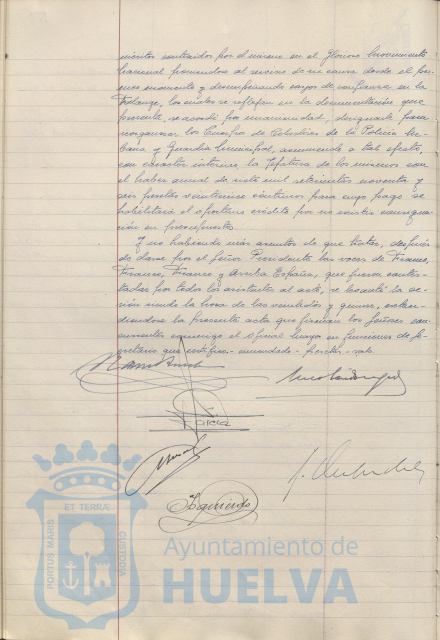 méritos contraídos por el mismo en el Glorioso Movimiento
Nacional poniéndose al servicio de su causa desde el pri-
mer momento y desempeñando cargos de confianza en la
Falange, los cuales se reflejan en la documentación que
presenta, se acordó por unanimidad, designarle para
reorganizar los Cuerpos de la Policía Ur-
bana y Guardia Municipal, asumiendo a tal efecto,
con carácter interino la Jefatura de los mismos con
el haber anual de siete mil setecientas noventa y
seis pesetas veinticinco céntimos para cuyo pago se
habilitará el oportuno crédito por no existir consigna-
ción en presupuesto.
Y no habiendo más asuntos de que tratar, después
de darse por el Señor Presidente las voces de Franco,
Franco, Franco y Arriba España, que fueron contes-
tadas por todos los asistentes al acto, se levantó la se-
sión siendo la hora de las veintidós y quince, exten-
diéndose la presente acta que firman los Señores con-
currentes conmigo el Oficial Mayor en funciones de Se-
cretario que certifico.- enmendado - - vale.
García
Izquierdo
PORTUS MARIS ET TERRÆ CUSTODIA
Ayuntamiento de
HUELVA